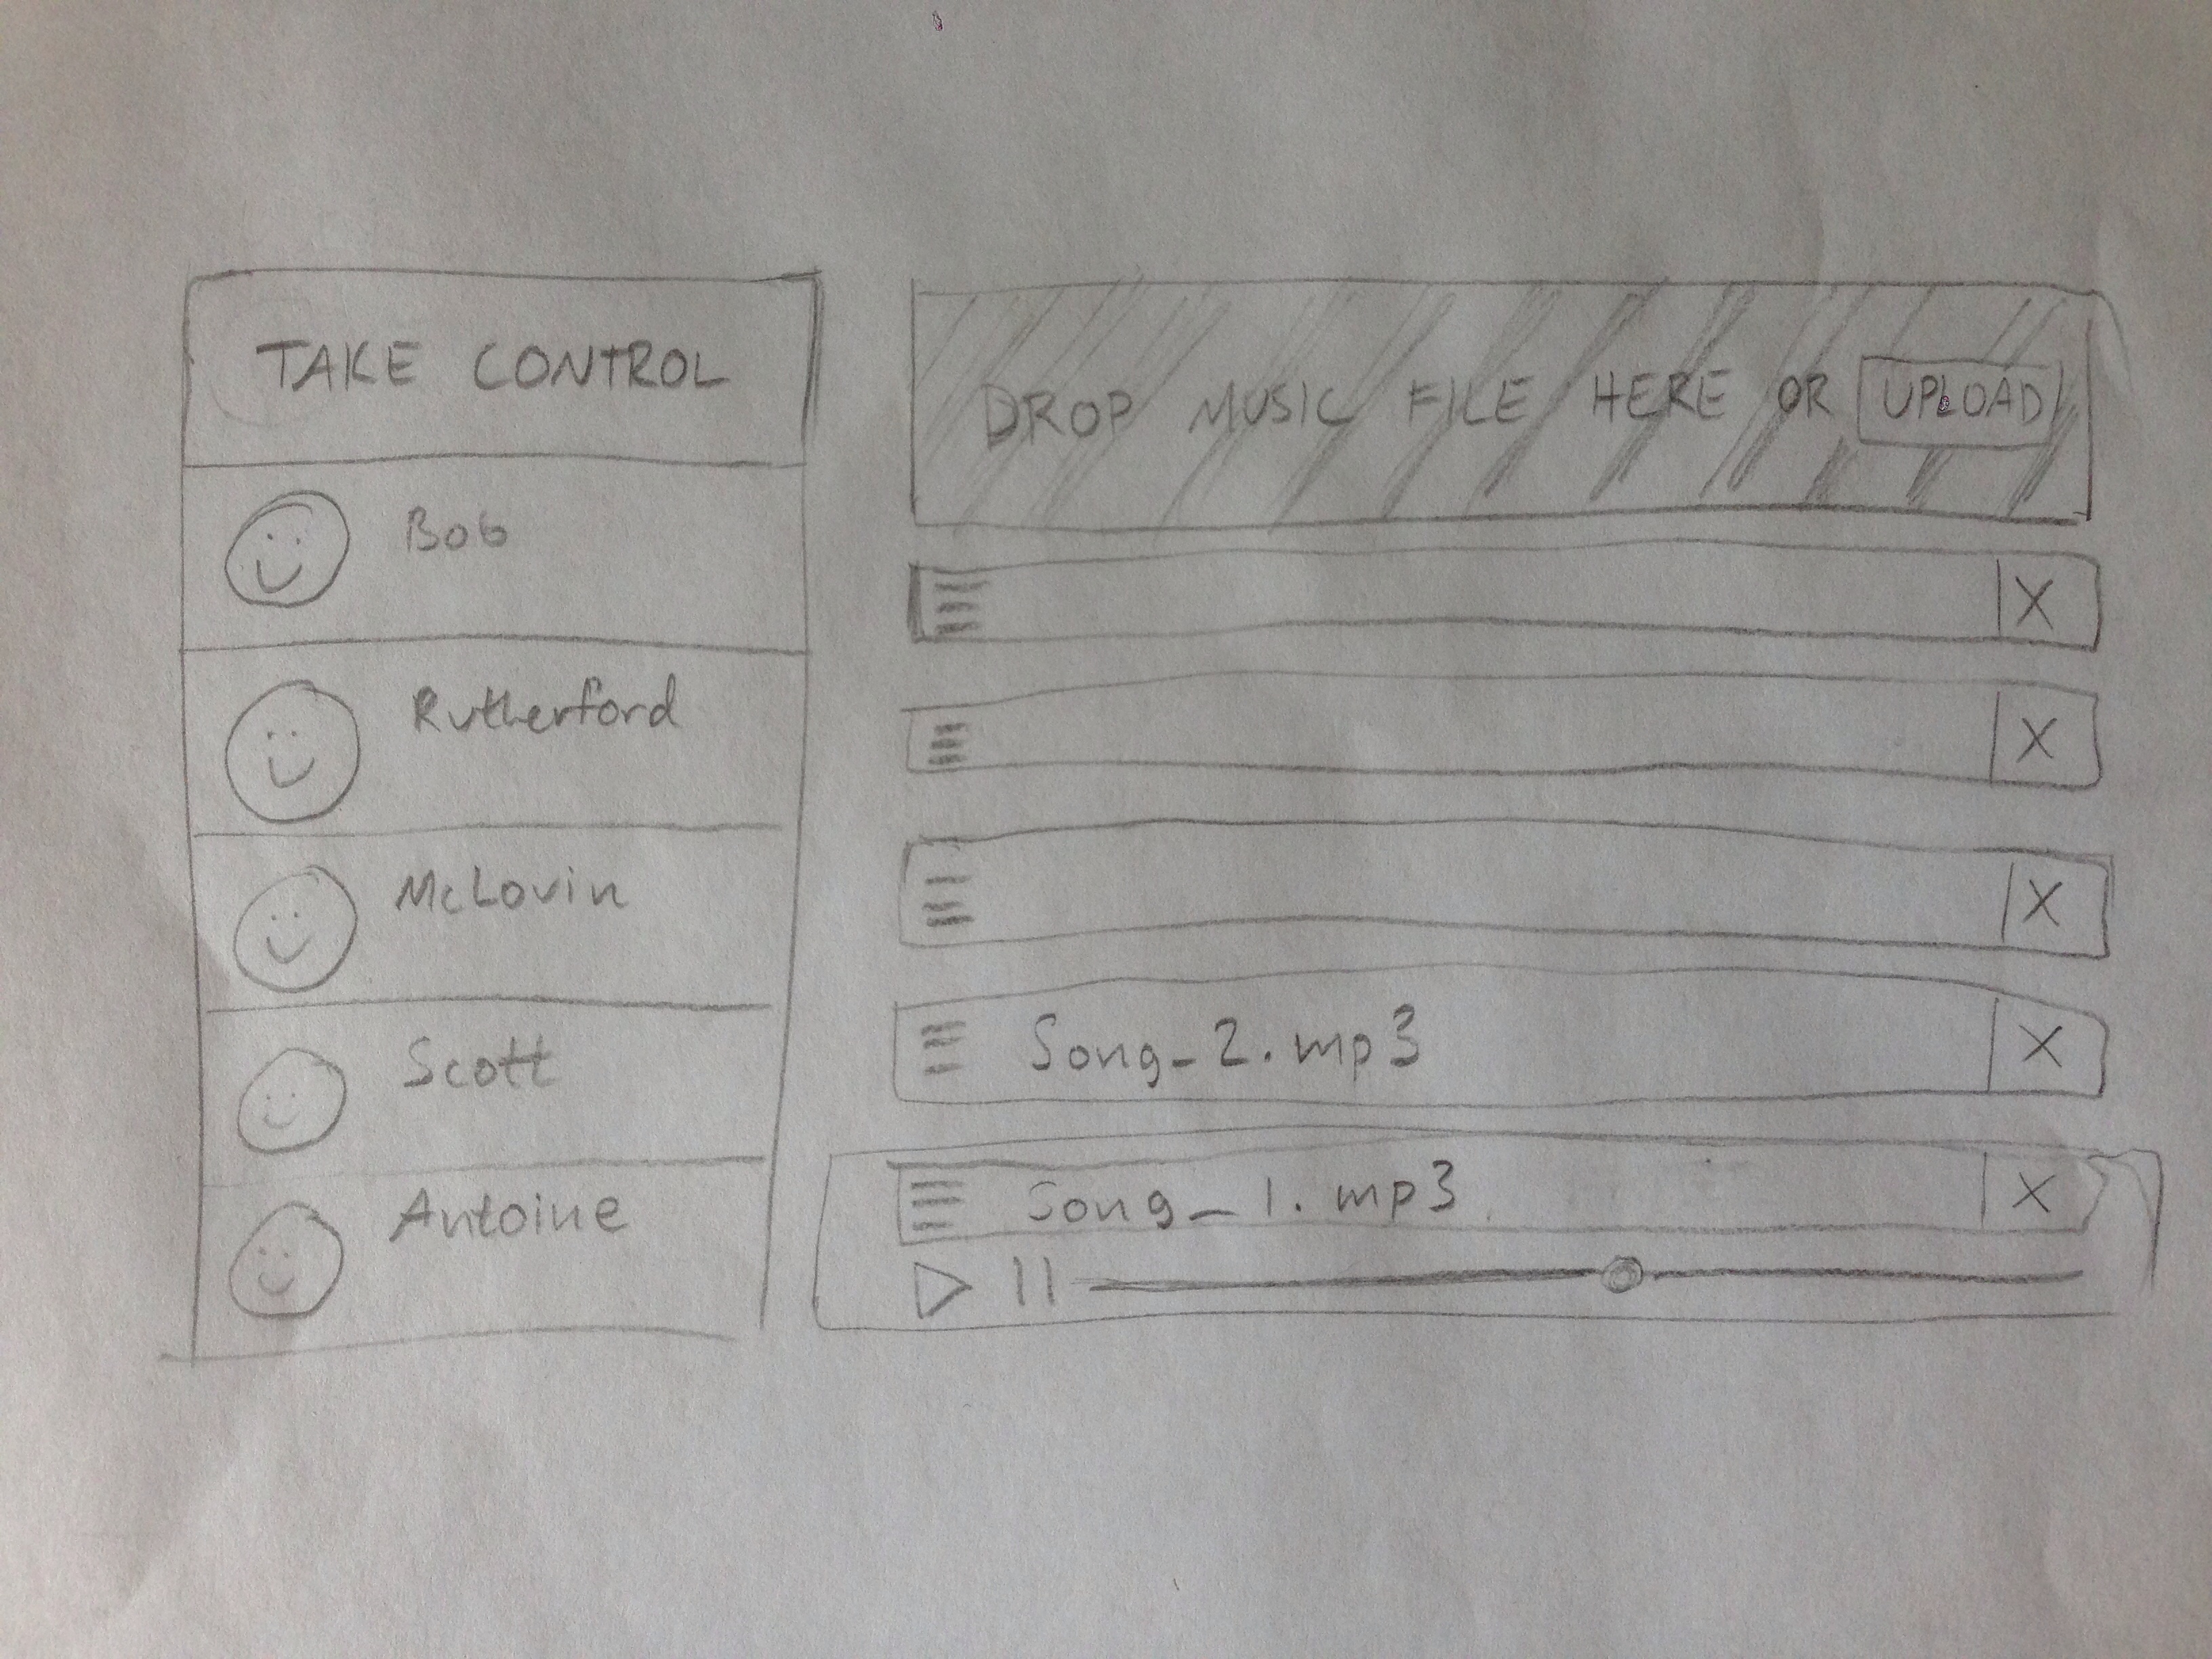 TAKE CONTROL
Bob
Rutherford
McLovin
Scott
Antoine
DROP MUSIC FILE HERE OR UPLOAD
X
X
X
Song_2.mp3 X
Song_1.mp3 X